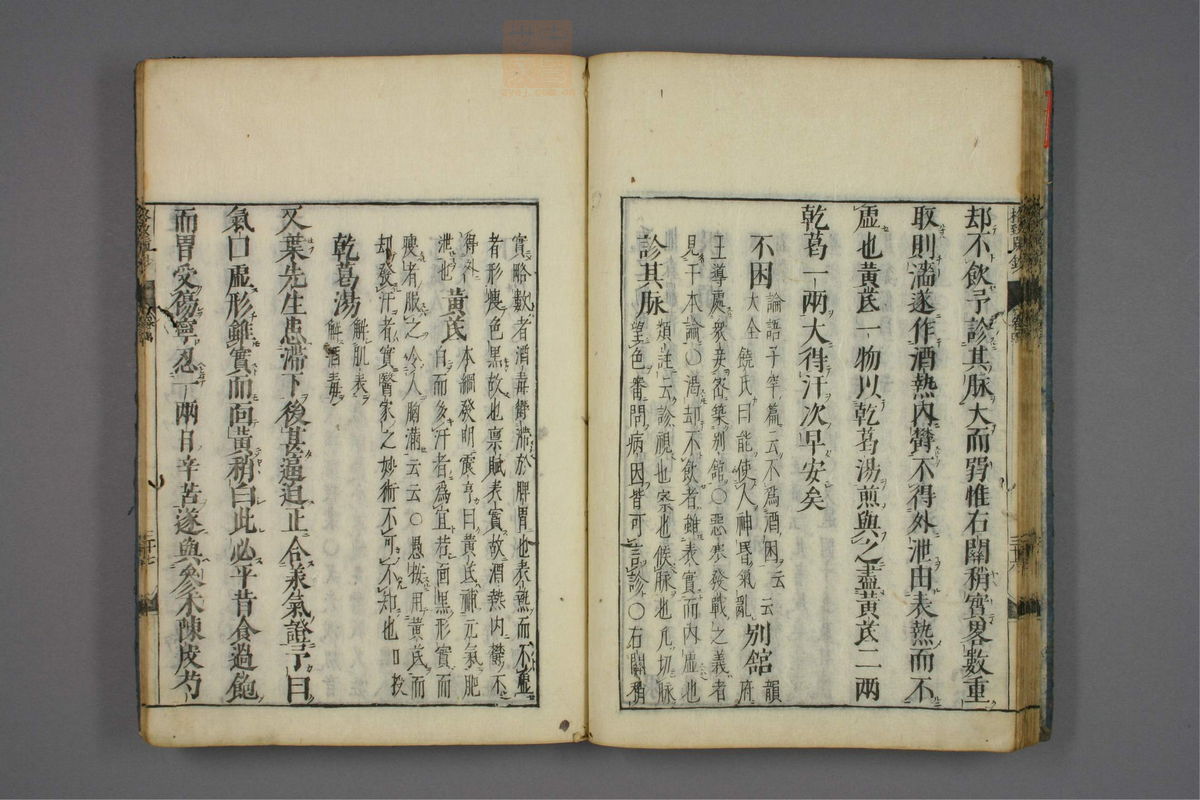 却不飲予診其脉大而弱惟右關稍實畧數重
取則濇遂作酒熱内欝不得外泄由表熱而不
虛也黃芪一物以乾葛湯煎與之盡黃芪二兩
乾葛一兩大得汗次早安矣
不困 論語子罕篇云不爲酒困云云
大全饒氏曰能使人神昏氣亂 別館 韻府
王導處衆
築別館〇惡寒發戰之義者
見于本論〇渴却不飲者雖表實而内虛也
診其脉 類註云診視也察也候脉也凡切脉
望色審問病因皆可言診〇右關稍
實略數者酒毒欝滯於脾胃也表熱而不虛
者形瘦色黑故也稟賦表實故酒熱内欝不
得外泄也 黃芪 本綱發明震亨曰黃芪補元氣肥
白而多汗者爲宜若面黑形實而
瘦者服之令人胸滿云云〇愚按用黃芪而
却發汗者實醫家之妙術不可不知也口授
乾葛湯 解肌表
解酒毒
又葉先生患滯下後甚逼迫正合承氣證予曰
氣口虛形雖實而面黃稍白此必平昔食過飽
而胃受傷寧忍一兩日辛苦遂與參朮陳皮芍